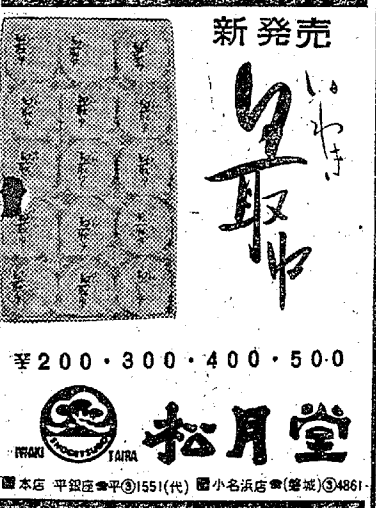 新発売
いわき
最中
¥200・300・400・500
SHOGETSUDO
IWAKI TAIRA
松月堂
本店 平銀座☎平③1551(代) 小名浜店☎(磐城)③4861